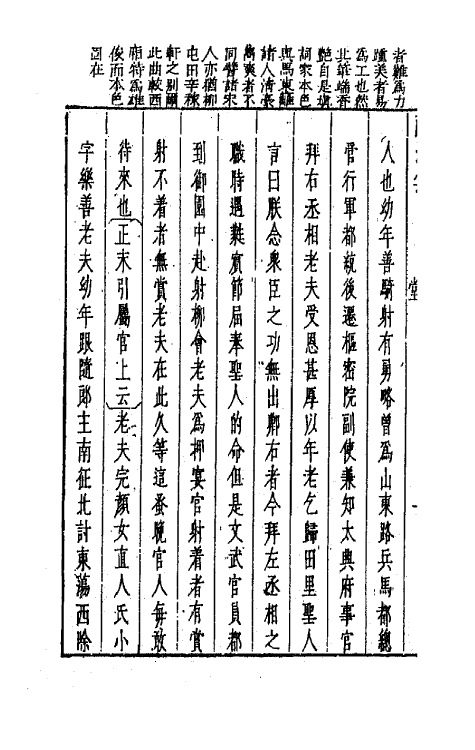 者難爲力
踵美者易
爲工也然
北華端香
艷自是塡
詞家本色
與馬東籬
諸人清長
雋爽者不
同譬諸宋
人亦猶柳
屯田辛稼
軒之別爾
此曲較西
廂特爲雄
俊而本色
固在
人也幼年善騎射有勇略曾爲山東路兵馬都總
管行軍都統後遷樞密院副使兼知大興府事官
拜右丞相老夫受恩甚厚以年老乞歸田里聖人
言曰朕念衆臣之功無出卿右者今拜左丞相之
職時遇蕤賓節屆奉聖人的命但是文武官員都
到御園中赴射柳會老夫爲押宴官射着者有賞
射不着者無賞老夫在此久等這蚤晚官人每敢
待來也正末引屬官上云老夫完顏女直人氏小
字樂善老夫幼年跟隨郎主南征北討東蕩西除